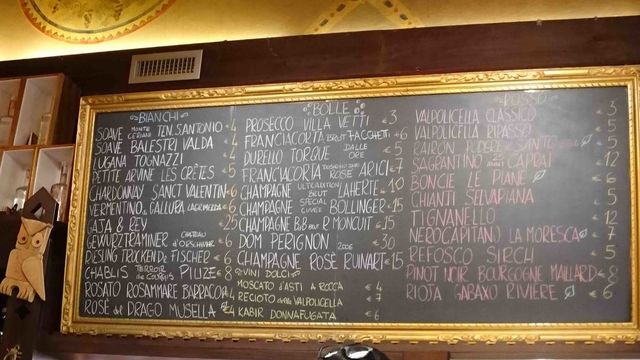 BIANCHI
SOAVE MONTE CERIANI TEN. SANTONIO € 4
SOAVE BALESTRI VALDA € 4
LUGANA TOGNAZZI € 4
PETITE ARVINE LES CRÊTES € 5
CHARDONNAY SANCT VALENTIN € 6
VERMENTINO di GALLURA € 6
GAJA & REY 25
GEWÜRZTRAMINER CHATEAU D'ORSCHWIHR € 6
RIESLING TROCKEN DE FISCHER € 6
CHABLIS TERROIR de COURGIS PILIZE € 8
ROSATO ROSAMMARE BARRACCO € 4
ROSÈ del DRAGO MUSELLA € 4
BOLLE
PROSECCO VILLA VETTI € 3
FRANCIACORTA BRUT FACCHETTI € 6
DURELLO TORQUE DALLE ORE € 5
FRANCIACORTA ROSÈ ARICI € 7
CHAMPAGNE ULTRADITION BRUT LAHERTE € 10
CHAMPAGNE SPECIAL CUVÉE BOLLINGER € 15
CHAMPAGNE B&B BRUT R MONCUIT € 15
DOM PERIGNON 2006 € 30
CHAMPAGNE ROSÈ RUINART € 15
VINI DOLCI
MOSCATO D'ASTI LA ROCCA € 4
RECIOTO della VALPOLICELLA € 4
KABIR DONNAFUGATA € 6
ROSSO
VALPOLICELLA CLASSICO € 3
VALPOLICELLA RIPASSO € 5
CAIRON PODERE SANTO € 5
SAGRANTINO CAPRAI € 12
BONCIE LE PIANE € 6
CHIANTI SELVAPIANA € 5
TIGNANELLO € 12
NEROCAPITANO LA MORESCA € 7
REFOSCO SIRCH € 5
PINOT NOIR BOURGOGNE MAILLARD € 8
RIOJA GABAXO RIVIÈRE € 6